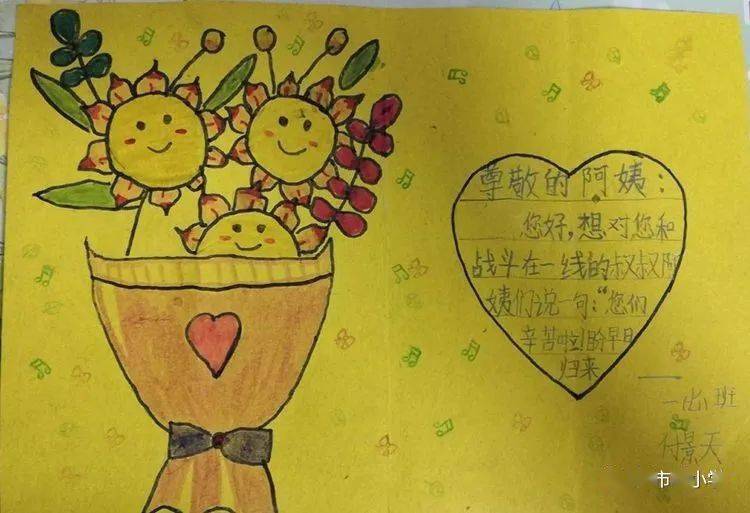 尊敬的阿姨：
您好，想对您和
战斗在一线的叔叔阿
姨们说一句：“您们
辛苦啦！盼早日
归来
一（6）班
付景天
市 小